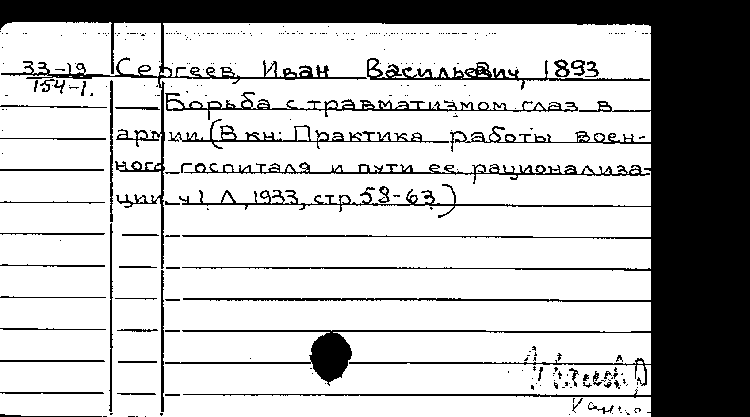 33-19 Сергеев, Иван Васильевич, 1893
154-1.
Борьба с травматизмом глаз в
армии. (В кн: Практика работы воен-
ного госпиталя и пути ее рационализа-
ции ч1 Л, 1933, стр. 58-63.)